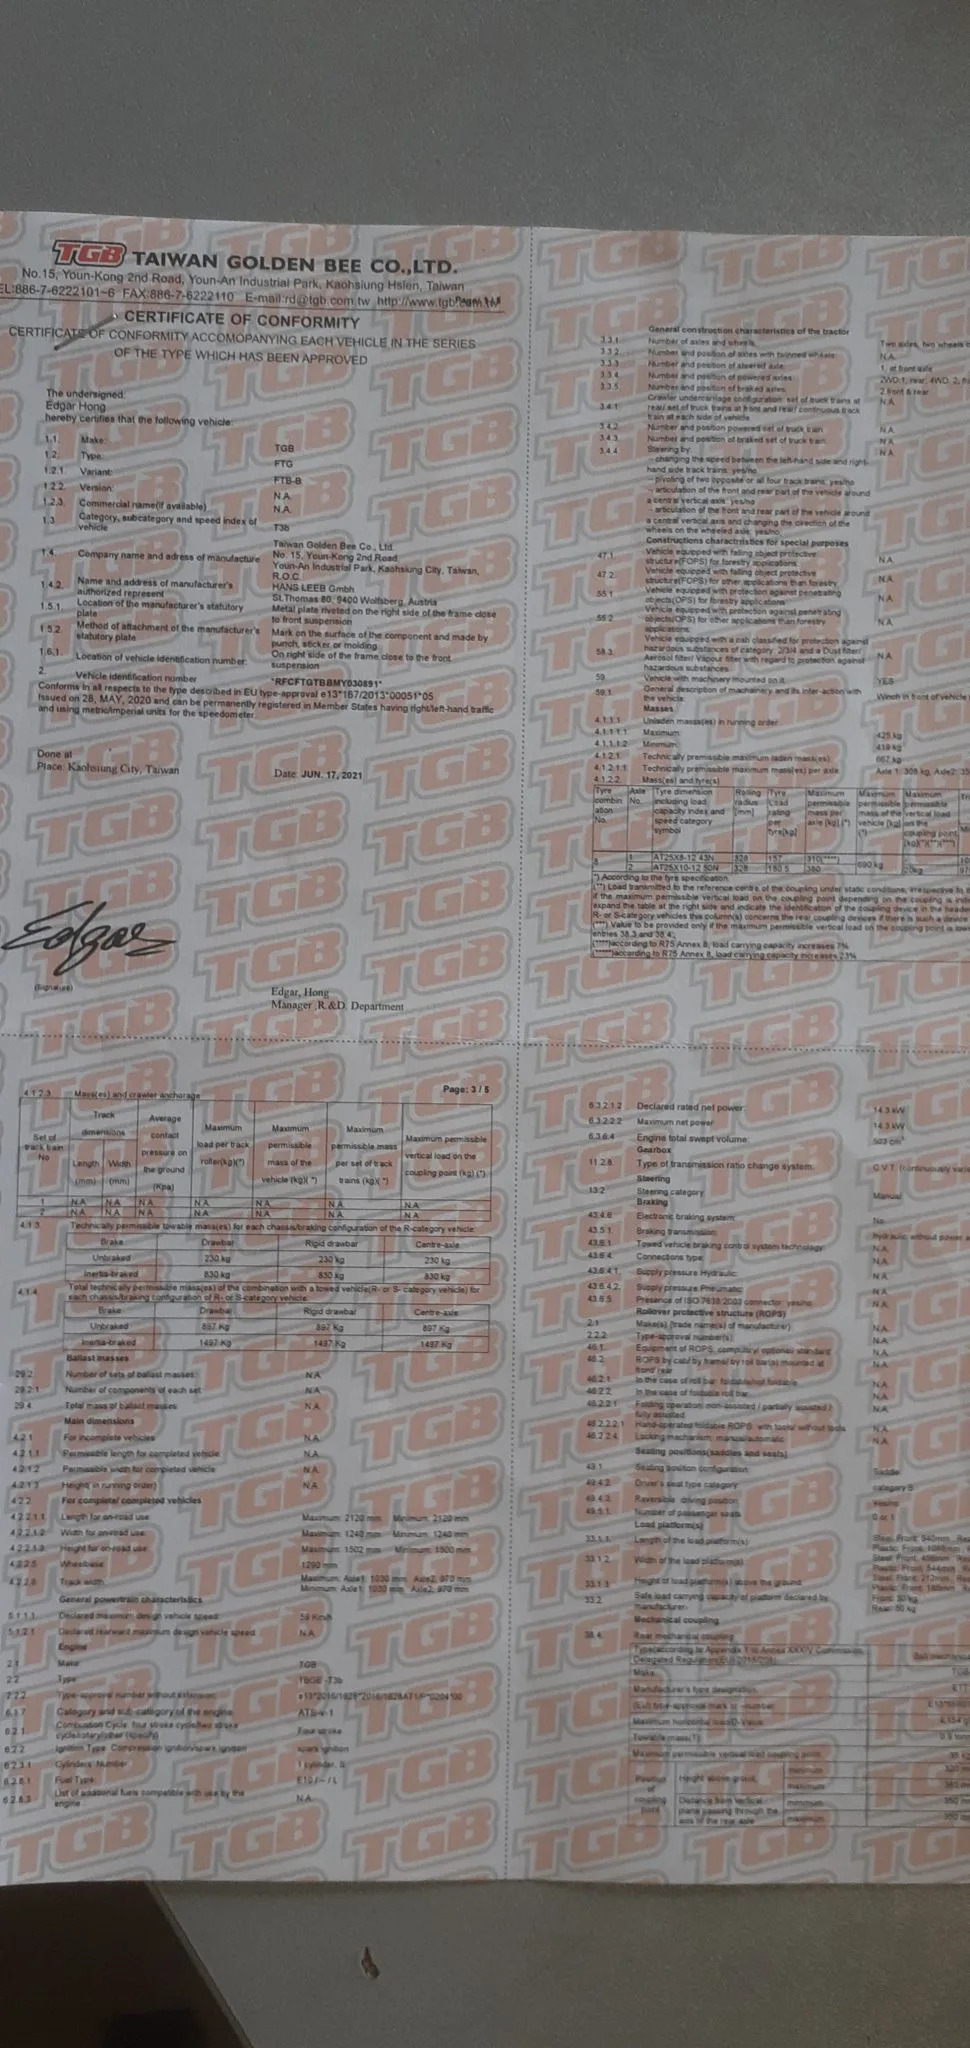 TGB TAIWAN GOLDEN BEE CO.,LTD.
No.15, Youn-Kong 2nd Road, Youn-An Industrial Park, Kaohsiung Hsien, Taiwan
EL:886-7-6222101~6 FAX:886-7-6222110 E-mail:rd@tgb.com.tw
CERTIFICATE OF CONFORMITY
CERTIFICATE OF CONFORMITY ACCOMOPANYING EACH VEHICLE IN THE SERIES
OF THE TYPE WHICH HAS BEEN APPROVED
The undersigned:
Edgar Hong
hereby certifies that the following vehicle:
1.1. Make: TGB
1.2. Type: FTG
1.2.1. Variant: FTB-B
1.2.2. Version: N.A.
1.2.3. Commercial name(if available) N.A.
1.3 Category, subcategory and speed index of vehicle T3b
1.4. Company name and adress of manufacture Taiwan Golden Bee Co., Ltd.
No. 15, Youn-Kong 2nd Road,
Youn-An Industrial Park, Kaohsiung City, Taiwan,
R.O.C.
1.4.2. Name and address of manufacturer's authorized represent HANS LEEB Gmbh
St.Thomas 80, 9400 Wolfsberg, Austria
1.5.1. Location of the manufacturer's statutory plate Metal plate riveted on the right side of the frame close
to front suspension
1.5.2. Method of attachment of the manufacturer's statutory plate Mark on the surface of the component and made by
punch, sticker or molding
1.6.1. Location of vehicle identification number: On right side of the frame close to the front
suspension
2. Vehicle identification number *RFCFTGTBBMY030891*
Conforms in all respects to the type described in EU type-approval e13*167/2013*00051*05
Issued on 28, MAY, 2020 and can be permanently registered in Member States having right/left-hand traffic
and using metric/imperial units for the speedometer.
Done at
Place: Kaohsiung City, Taiwan Date: JUN. 17, 2021
Edgar
(Signature)
Edgar, Hong
Manager ,R.&D. Department
General construction characteristics of the tractor
3.3.1 Number of axles and wheels: Two axles, two wheels
3.3.2. Number and position of axles with twinned wheels: N.A.
3.3.3 Number and position of steered axle: 1, at front axle
3.3.4. Number and position of powered axles 2WD:1, rear; 4WD: 2,
3.3.5. Number and position of braked axles: 2 front & rear
3.4.1. Crawler undercarriage configuration: set of truck trains at N.A.
rear/ set of truck trains at front and rear/ continuous track
train at each side of vehicle
3.4.2. Number and position powered set of truck train: N.A.
3.4.3. Number and position of braked set of truck train: N.A.
3.4.4 Steering by: N.A.
- changing the speed between the left-hand side and right-
hand side track trains: yes/no
- pivoting of two opposite or all four track trains: yes/no
- articulation of the front and rear part of the vehicle around
a central vertical axis: yes/no
- articulation of the front and rear part of the vehicle around
a central vertical axis and changing the direction of the
wheels on the wheeled axle: yes/no
Constructions charactristics for special purposes
47.1 Vehicle equipped with falling object protective N.A.
structure(FOPS) for forestry applications:
47.2. Vehicle equipped with falling object protective N.A.
structure(FOPS) for other applications than forestry
55.1 Vehicle equipped with protection against penetrating N.A.
objects(OPS) for forestry applications:
55.2. Vehicle equipped with protection against penetrating N.A.
objects(OPS) for other applications than forestry
applications:
58.3. Vehicle equipped with a cab classified for protection against N.A.
hazardous substances of category: 2/3/4 and a Dust filter/
Aerosol filter/ Vapour filter with regard to protection against
hazardous substances
59. Vehicle with machinery mounted on it: YES
59.1. General description of machainery and its inter-action with Winch in front of vehicle
the vehicle:
Masses
4.1.1.1 Unladen massa(es) in running order:
4.1.1.1.1. Maximum: 425 kg
4.1.1.1.2 Minimum: 418 kg
4.1.2.1 Technically premissible maximum laden mass(es): 667 kg
4.1.2.1.1. Technically premissible maximum mass(es) per axle Axle 1: 308 kg, Axle2:
4.1.2.2. Mass(es) and tyre(s)
Tyre combination No. Axle No. Tyre dimension including load capacity index and speed category symbol Rolling radius [mm] Tyre Load rating per tyre[kg] Maximum permissible mass per axle [kg] (*) Maximum permissible mass of the vehicle [kg] (*) Maximum permissible vertical load on the coupling point [kg](*)(**)(***)
1 AT25X8-12 43N 328 157 310(****) 690 kg
2 AT25X10-12 50N 328 180.5 380 20kg
*) According to the tyre specification.
(**) Load tranmitted to the reference centre of the coupling under static conditions, irrespective
if the maximum permissible vertical load on the coupling point depending on the coupling is
expand the table at the right side and indicate the identification of the coupling device in the
R- or S-category vehicles this column(s) concerns the rear coupling devices if there is such a device
(***) Value to be provided only if the maximum permissible vertical load on the coupling point is
entries 38.3 and 38.4.
(****)according to R75 Annex 8, load carrying capacity increases 7%
(*****)according to R75 Annex 8, load carrying capacity increases 23%
Page: 3 / 5
4.1.2.3. Mass(es) and crawler anchorage
Set of track train No Track dimensions Length (mm) Width (mm) Average contact pressure on the ground (Kpa) Maximum load per track roller(kg)(*) Maximum permissible mass of the vehicle (kg)( *) Maximum permissible mass per set of track trains (kg)( *) Maximum permissible vertical load on the coupling point (kg) (*)
1 N.A N.A N.A N.A N.A N.A N.A
2 N.A N.A N.A N.A N.A N.A N.A
4.1.3. Technically permissible towable mass(es) for each chassis/braking configuration of the R-category vehicle:
Brake Drawbar Rigid drawbar Centre-axle
Unbraked 230 kg 230 kg 230 kg
Inertia-braked 830 kg 830 kg 830 kg
4.1.4. Total technically permissible mass(es) of the combination with a towed vehicle(R- or S- category vehicle) for
each chassis/braking configuration of R- or S-category vehicle:
Brake Drawbar Rigid drawbar Centre-axle
Unbraked 897 Kg 897 Kg 897 Kg
Inertia-braked 1497 Kg 1497 Kg 1497 Kg
Ballast masses
29.2. Number of sets of ballast masses: N.A.
29.2.1. Number of components of each set N.A.
29.4. Total mass of ballast masses N.A.
Main dimensions
4.2.1 For incomplete vehicles N.A.
4.2.1.1 Permissible length for completed vehicle N.A.
4.2.1.2 Permissible width for completed vehicle N.A.
4.2.1.3 Height( in running order) N.A.
4.2.2 For complete/ completed vehicles
4.2.2.1.1. Length for on-road use: Maximum: 2120 mm Minimum: 2120 mm
4.2.2.1.2. Width for on-road use: Maximum: 1240 mm Minimum: 1240 mm
4.2.2.1.3. Height for on-road use: Maximum: 1502 mm Minimum: 1500 mm
4.2.2.5. Wheelbase 1290 mm
4.2.2.6. Track width Maximum: Axle1: 1030 mm Axle2: 970 mm
Minimum: Axle1: 1030 mm Axle2: 970 mm
General powertrain characteristics
5.1.1.1. Declared maximum design vehicle speed: 59 Km/h
5.1.2.1 Declared rearward maximum design vehicle speed: N.A.
Engine
2.1 Make: TGB
2.2 Type: TBGE -T3b
2.2.2. Type-approval number without extension:
6.1.7 Category and sub category of the engine
6.2.1. Combustion Cycle: four stroke cycle/two stroke Four stroke
cycle/rotary/other (specify)
6.2.2 Ignition Type: Compression ignition/spark ignition spark ignition
6.2.3.1 Cylinders Number
6.2.8.1 Fuel Type: E10 / - / L
6.2.8.3. List of additional fuels compatible with use by the N.A.
engine
6.3.2.1.2 Declared rated net power: 14.3 kW
6.3.2.2.2 Maximum net power 14.3 kW
6.3.6.4 Engine total swept volume: 503 cm³
Gearbox
11.2.8. Type of transmission ratio change system: C.V.T. (continuously
Steering
13.2 Steering category Manual
Braking
43.4.6 Electronic braking system: No
43.5.1. Braking transmission: hydraulic without power
43.6.1 Towed vehicle braking control system technology N.A.
43.6.4. Connections type: N.A.
43.6.4.1. Supply pressure Hydraulic: N.A.
43.6.4.2. Supply pressure Pneumatic: N.A.
43.6.5. Presence of ISO 7638:2003 connector: yes/no N.A.
Rollover protective structure (ROPS)
2.1 Make(s) (trade name(s) of manufacturer) N.A.
2.2.2 Type-approval number(s) N.A.
46.1. Equipment of ROPS, compulory/ optional/ standard N.A.
46.2 ROPS by cab/ by frame/ by roll bar(s) mounted at N.A.
front/ rear
46.2.1 In the case of roll bar: foldable/not foldable N.A.
46.2.2. In the case of foldable roll bar: N.A.
46.2.2.1 Folding operation: non-assisted / partially assisted / N.A.
fully assisted
46.2.2.2.1 Hand-operated foldable ROPS: with tools/ without tools N.A.
46.2.2.4. Locking mechanism: manual/automatic N.A.
Seating positions(saddles and seats)
49.1. Seating position configuration: Saddle
49.4.2. Driver's seat type category: category B
49.4.3. Reversible driving position: Yes/no
49.5.1. Number of passenger seats 0 or 1
Load platform(s)
33.1.1. Length of the load platform(s) Steel: Front: 940mm,
33.1.2. Width of the load platform(s)
33.1.3. Height of load platform(s) above the ground
33.2 Safe load carrying capacity of platform declared by Front: 30 kg
manufacturer: Rear: 50 kg
Mechanical coupling
38.4. Rear mechanical coupling
Make:
Manufacturer's type designation:
(EU) type-approval mark or -number:
Maximum horizontal load/D-value:
Towable mass(T)
Maximum permissible vertical load coupling point:
Position of coupling point Height above ground minimum
maximum
Distance from vertical plane passing through the axis of the rear axle minimum
maximum